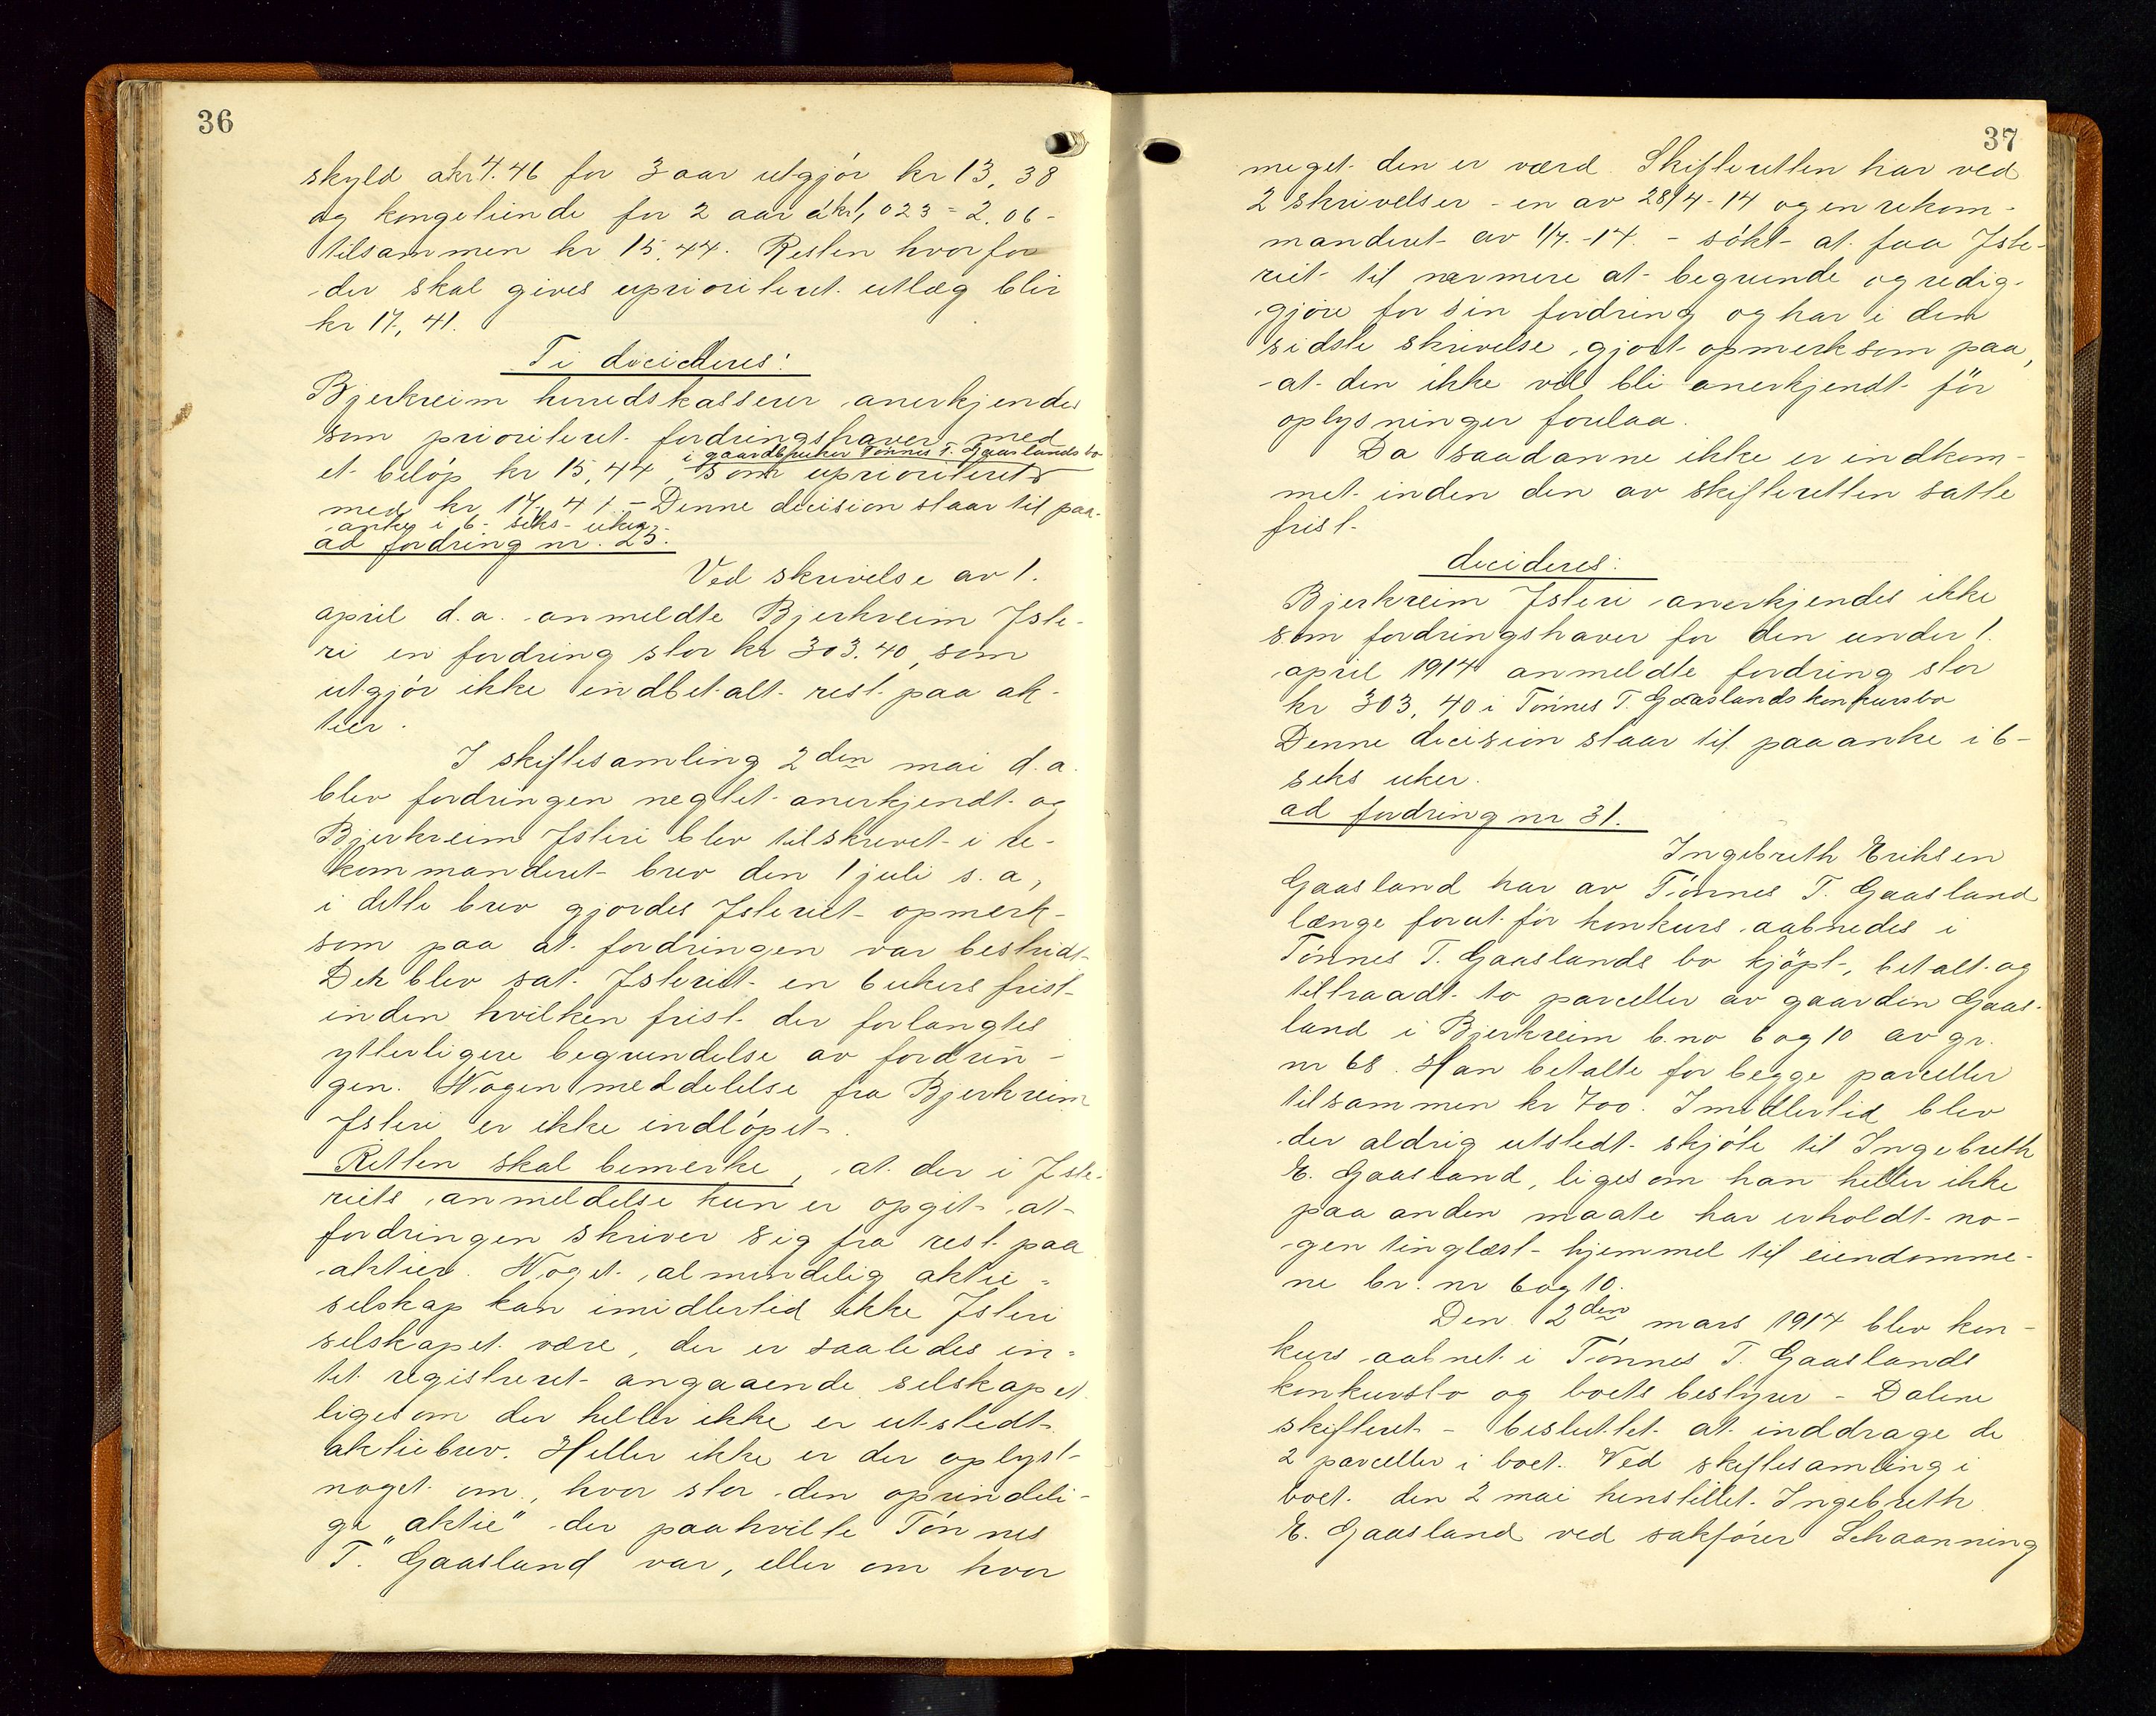 36
skyld a kr 4.46 for 3 aar utgjör kr 13,38
og kongetiende for 2 aar á kr 1,023 = 2.06 -
tilsammen kr 15,44. Resten hvorfor
der skal gives uprioriteret utlæg blir
kr 17,41.
Ti decideres:
Bjerkreim herredskasserer anerkjendes
som prioriteret fordringshaver med
i gaardbruker Tönnes T. Gaaslands bo
et belöp kr 15,44, som uprioriteret
med kr 17,41 - Denne decision staar til paa-
anke i 6 - seks - uker.
ad fordring nr. 23.
Ved skrivelse av 1.
april d.a. anmeldte Bjerkreim Yste-
ri en fordring stor kr 303.40, som
utgjör ikke indbetalt rest paa ak-
tier.
I skiftesamling 2den mai d.a.
blev fordringen negtet anerkjendt og
Bjerkreim Ysteri blev tilskrevet i re-
kommanderet brev den 1 juli s.a,
i dette brev gjordes Ysteriet opmerk-
som paa at fordringen var bestridt
Der blev sat Ysteriet en 6 ukers frist
inden hvilken frist der forlangtes
ytterligere begrundelse av fordrin-
gen. Nogen meddelelse fra Bjerkreim
Ysteri er ikke indlöpet.
Retten skal bemerke, at der i Yste-
riets anmeldelse kun er opgit at
fordringen skriver sig fra rest paa
aktier. Noget almindelig aktie-
selskap kan imidlertid ikke Ysteri
selskapet være, der er saaledes in-
tet registreret angaaende selskapet
ligesom der heller ikke er utstedt
aktiebrev. Heller ikke er der oplyst
noget om, hvor stor den oprindeli-
ge "aktie" der paahvilte Tönnes
T. Gaasland var, eller om hvor
37
meget den er værd. Skifteretten har ved
2 skrivelser - en av 28/4-14 og en rekom-
manderet av 1/7.-14. - sökt at faa Yste-
riet til nærmere at begrunde og redig-
gjöre for sin fordring og har i den
sidste skrivelse gjort opmerksom paa,
at den ikke vil bli anerkjendt för
oplysninger forelaa.
Da saadanne ikke er indkom-
met inden den av skifteretten satte
frist
decideres:
Bjerkreim Ysteri anerkjendes ikke
som fordringshaver for den under 1.
april 1914 anmeldte fordring stor
kr 303,40 i Tönnes T. Gaaslands konkursbo
Denne decision staar til paaanke i 6-
seks uker.
ad fordring nr 31.
Ingebreth Eriksen
Gaasland har av Tönnes T. Gaasland
længe forut för konkurs aabnedes i
Tönnes T. Gaaslands bo kjöpt, betalt og
tiltraadt to parceller av gaarden Gaas-
land i Bjerkreim b.no 6 og 10 av gr.
nr 68. Han betalte for begge parceller
tilsammen kr 700. Imidlertid blev
der aldrig utstedt skjöte til Ingebreth
E. Gaasland, ligesom han heller ikke
paa anden maate har erholdt no-
gen tinglæst hjemmel til eiendomme-
ne br. nr 6 og 10.
Den 2den mars 1914 blev kon-
kurs aabnet i Tönnes T. Gaaslands
konkursbo og boets bestyrer - Dalene
skifteret - besluttet at inddrage de
2 parceller i boet. Ved skiftesamling i
boet den 2 mai henstillet Ingebreth
E. Gaasland ved sakförer Schaanning